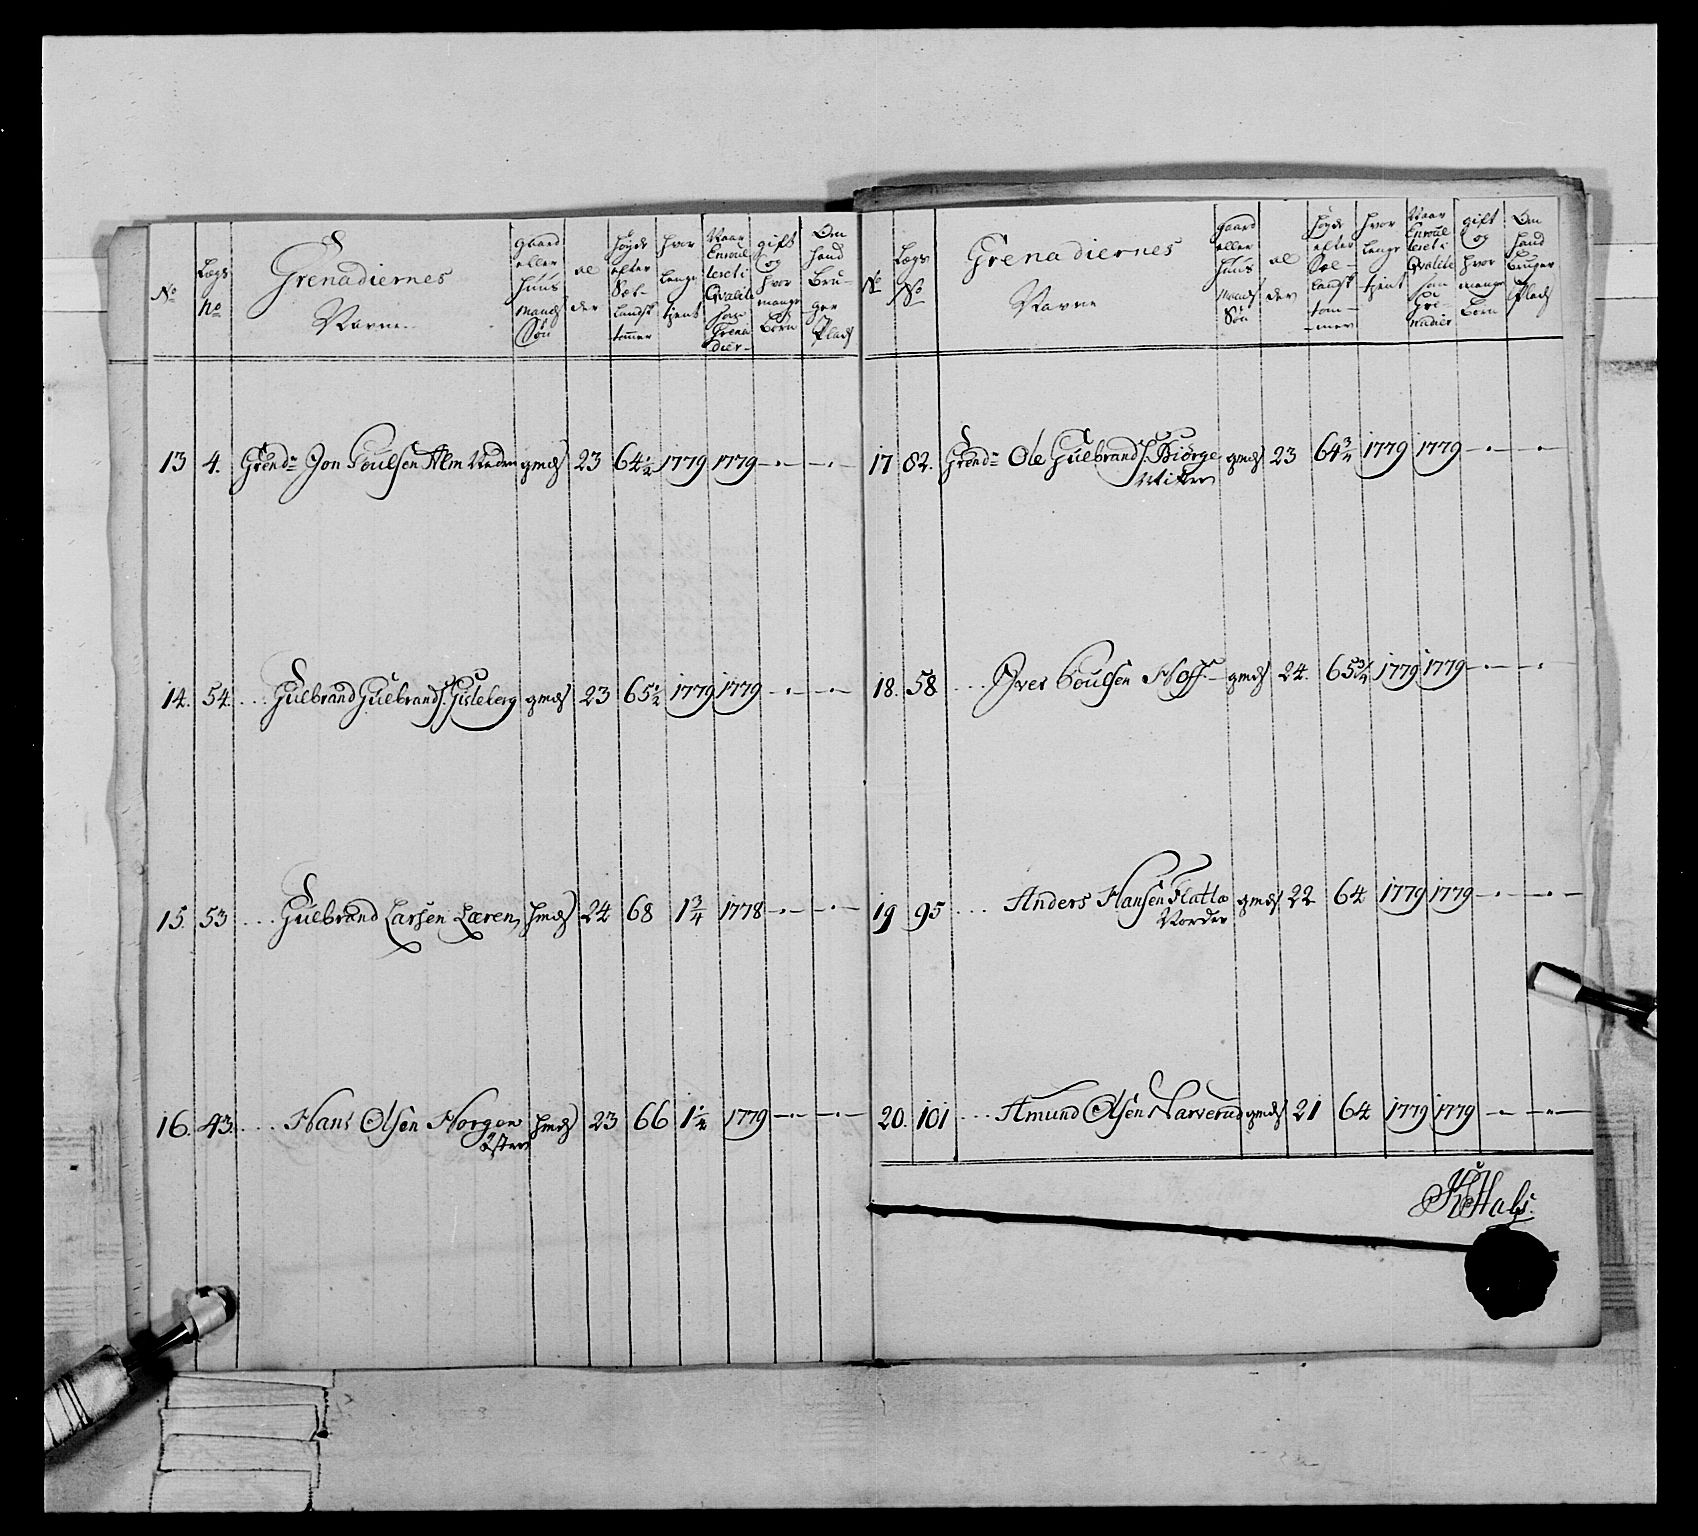 No
Lægs No
Grenadiernes Navne
gaard eller Huus mands Søn
al der
Høyde efter Sæl- landsk tommer
hvor lenge tient
Naar Enroul leret i Qvalite som Grena dier
gift og hvor mange Børn
Om hand Bru- ger Plads
13 4. Grend: Jon Poulsen Alm Neden gmds 23 64 1/2 1779 1779 — . — — . —
14. 54. ... Gulbrand Gulbrands. Gisleberg gmds 23 65 1/2 1779 1779 — . — — . —
15. 53 ... Gulbrand Larsen Læren hmds 24 68 1 3/4 1778 — . — — . —
16. 43. ... Hans Olsen Horgen hmds 23 66 1 1/2 1779 — . — — . —
Østre
No
Lægs No
Grenadiernes Navne
gaard eller Huus mands Søn
al der
Høyde efter Sæl- landsk tom- mer
hvor lenge tient
Naar Enroul leret i Qvalite som Gre- nadier
gift og hvor mange Børn
Om hand Bruger Plads
17 82. Grend: Ole Gulbrands. Biørge gmds 23 64 3/4 1779 1779 — . — — . —
Mitter
18. 58 ... Iver Poulsen Hoff gmds 24. 65 3/4 1779 1779 — . — .
19 95 ... Anders Hansen Flatla gmds 22 64 1779 1779 — . — — . —
Nordre
20. 101 ... Amund Olsen Narverud gmds 21 64 1779 1779 — . — — . —
Hals.